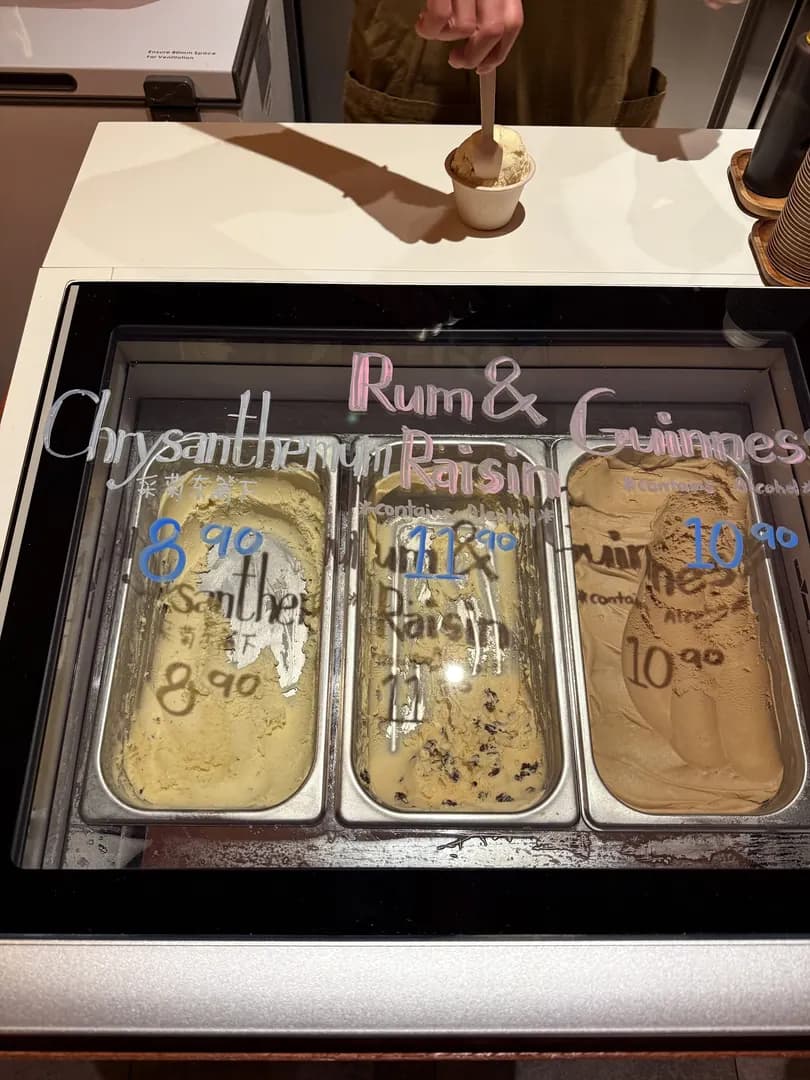 Ensure 80mm Space
For Ventilation
Chrysanthemum
采菊东篱下
8 90
Rum &
Raisin
*contains Alcohol*
11 90
Guinness
*contains Alcohol*
10 90